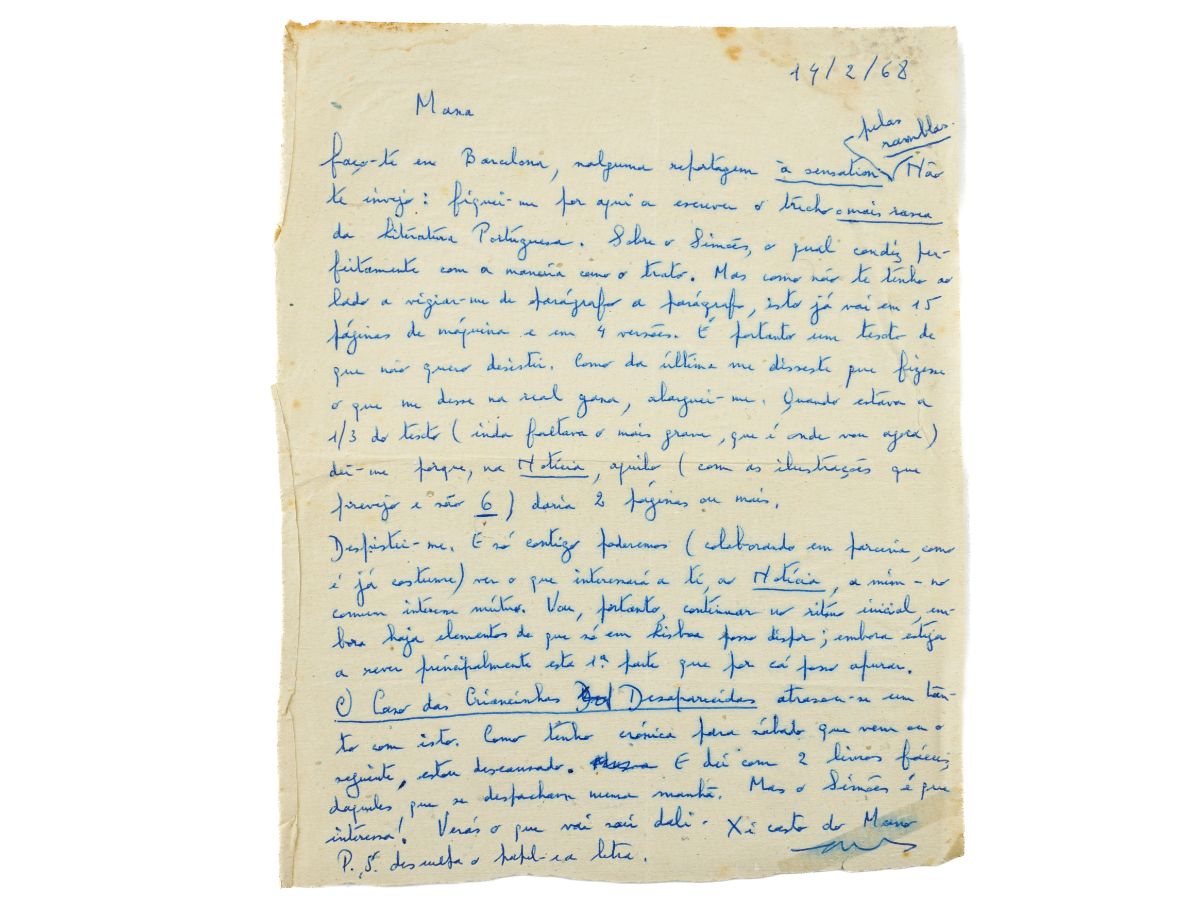 14/2/68
Mana
pelas
ramblas.
faço-te em Barcelona, nalguma reportagem à sensation. Não
te invejo: fiquei-me por aqui a escrever o trecho o mais rasca
da Literatura Portuguesa. Sobre o Simões, o qual condiz per-
feitamente com a maneira como o trato. Mas como não te tenho ao
lado a vigiar-me de parágrafo a parágrafo, isto já vai em 15
páginas de máquina e em 4 versões. É portanto um texto de
que não quero desistir. Como da última me disseste que fizesse
o que me desse na real gana, alarguei-me. Quando estava a
1/3 do texto (inda faltava o mais grave, que é onde vou agora)
dei-me porque, na Notícia, aquilo (com as ilustrações que
prevejo e são 6) daria 2 páginas ou mais.
Despistei-me. E só contigo poderemos (colaborando em parceria, como
é já costume) ver o que interessará a ti, ao Notícia, a mim - no
comum interesse mútuo. Vou, portanto, continuar no ritmo inicial, em-
bora haja elementos de que só em Lisboa posso dispor; embora esteja
a rever principalmente esta 1ª parte que por cá posso apurar.
O Caso das Criancinhas Desaparecidas atrasou-se um tan-
to com isto. Como tenho crónica para sábado que vem ou o
seguinte, estou descansado. E dei com 2 livros fáceis,
daqueles, que se despacham numa manhã. Mas o Simões é que
interessa! Verás o que vai sair dali - Xi casto do Mano
P.S. desculpa o papel-e a letra.